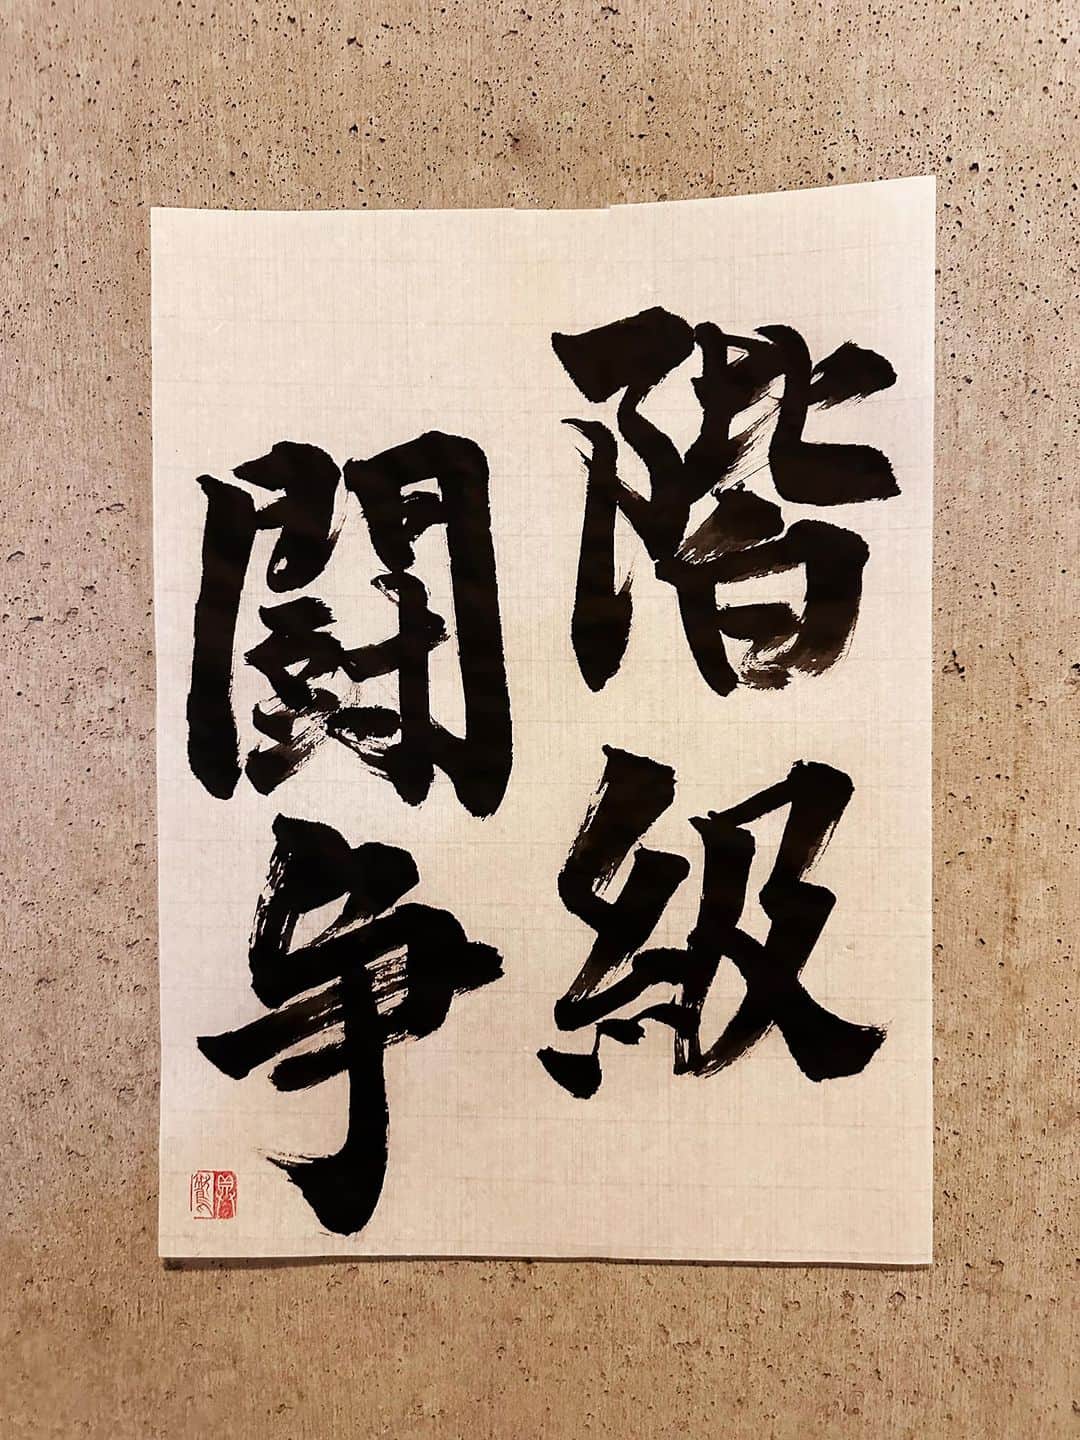 階級
闘争